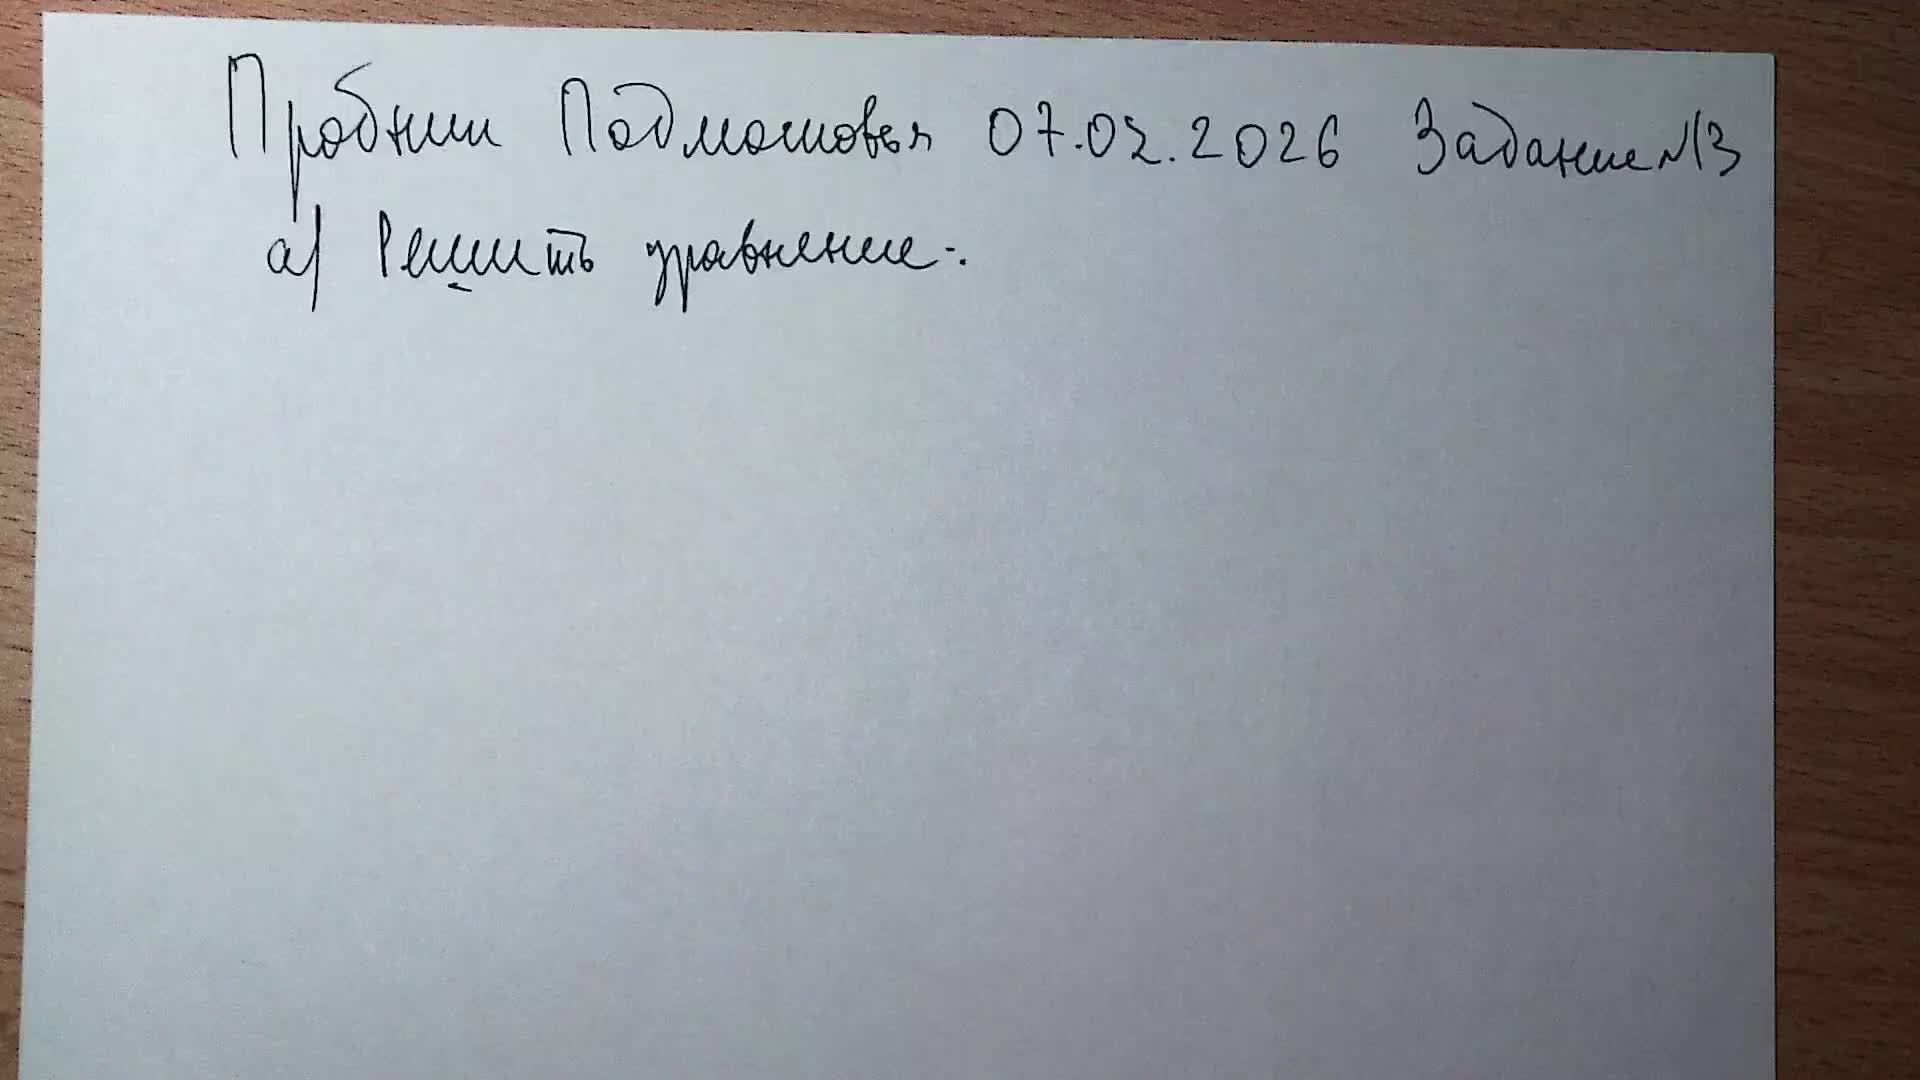 Пробник Подмосковья 07.02.2026 Задание №13
а) Решить уравнение: